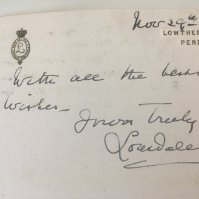 Nov 29th
LOWTHE
PEN
With all the best
Wishes—
Yours Truly
Lonsdale